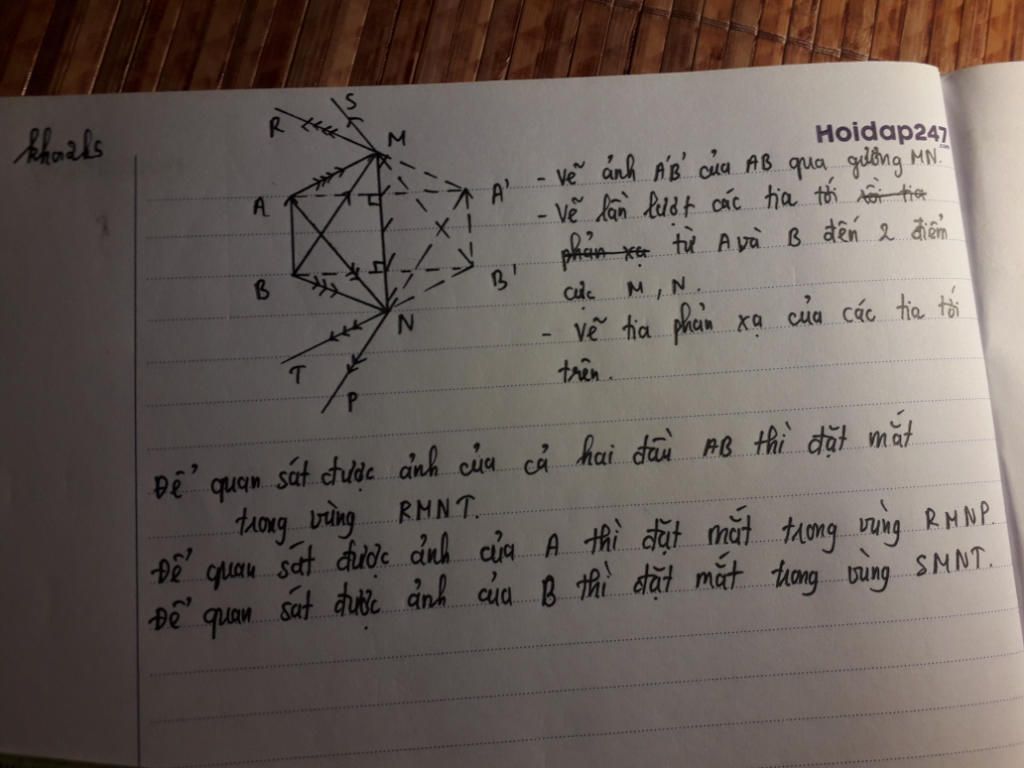 khoa2k5
Hoidap247
.com
S
R
M
A
A'
B
B'
N
T
P
- Vẽ ảnh A'B' của AB qua gương MN.
- Vẽ lần lượt các tia tới rồi tia
phản xạ từ A và B đến 2 điểm
cực M, N.
- Vẽ tia phản xạ của các tia tới
trên.
Để quan sát được ảnh của cả hai đầu AB thì đặt mắt
trong vùng RMNT.
Để quan sát được ảnh của A thì đặt mắt trong vùng RMNP.
Để quan sát được ảnh của B thì đặt mắt trong vùng SMNT.